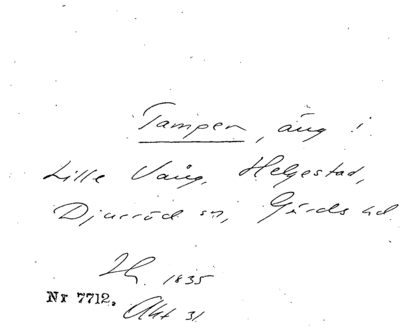 Tampen, äng i
Lille Vång, Helgestad,
Djurröd sn, Gärds hd
1835
Nr 7712. Akt 31